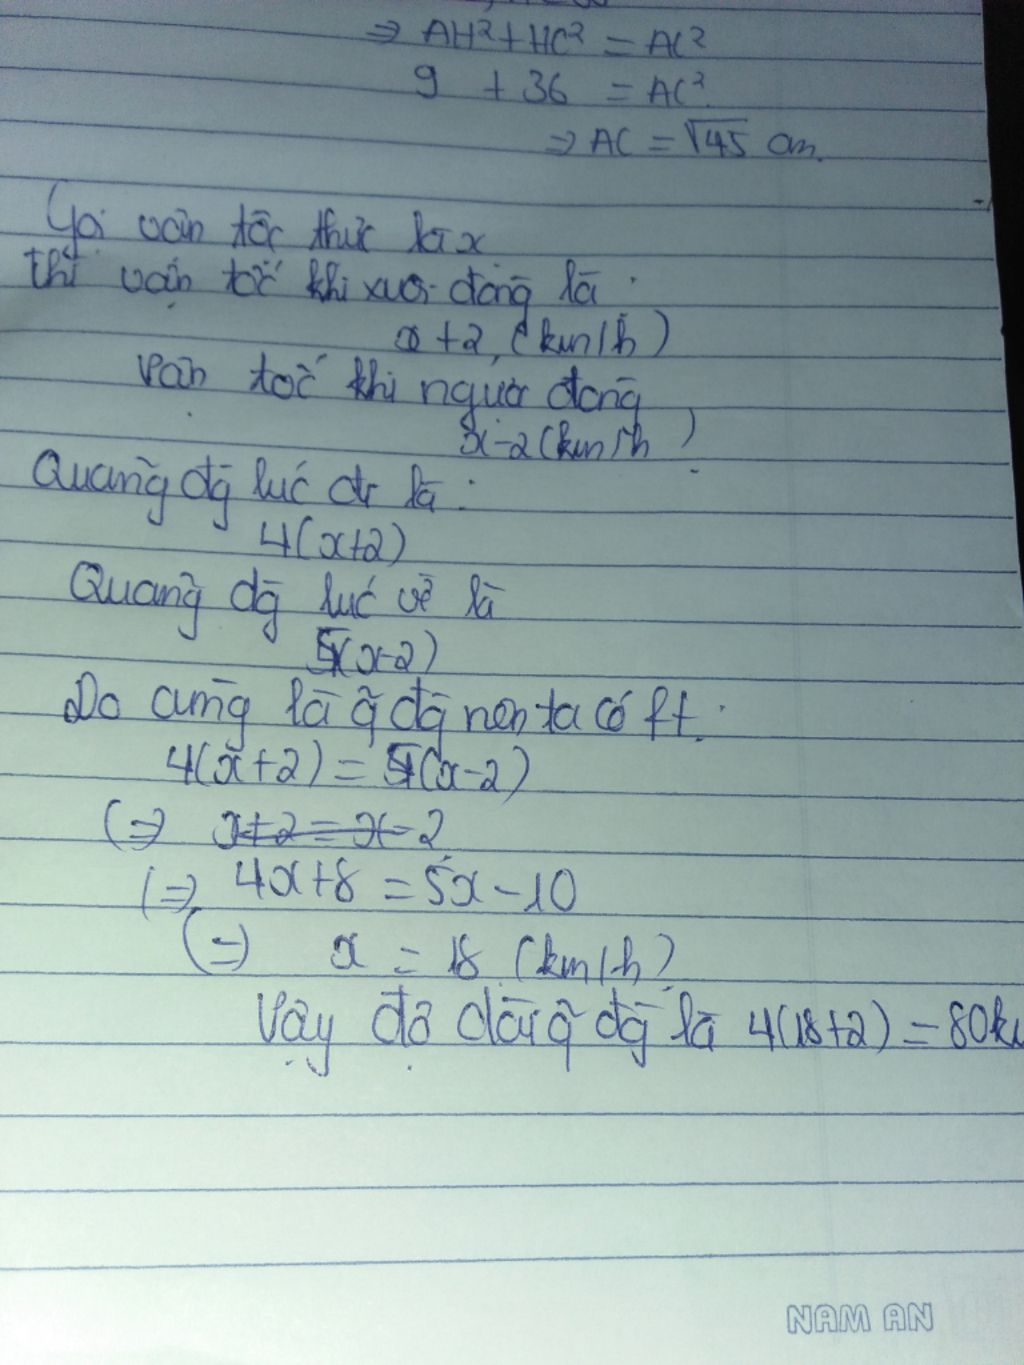 ⇒ AH² + HC² = AC²
9 + 36 = AC²
⇒ AC = √45 cm.
Gọi vận tốc thực là x
thì vận tốc khi xuôi dòng là :
x + 2 (km/h)
Vận tốc khi ngược dòng
x - 2 (km/h)
Quãng đg lúc đi là :
4(x+2)
Quãng đg lúc về là
5(x-2)
Do cùng là q̃ đg nên ta có pt :
4(x+2) = 5(x-2)
(⇒ x+2 = x-2
(⇒ 4x+8 = 5x-10
(=) x = 18 (km/h)
Vậy độ dài q̃ đg là 4(18+2) = 80k
NAM AN